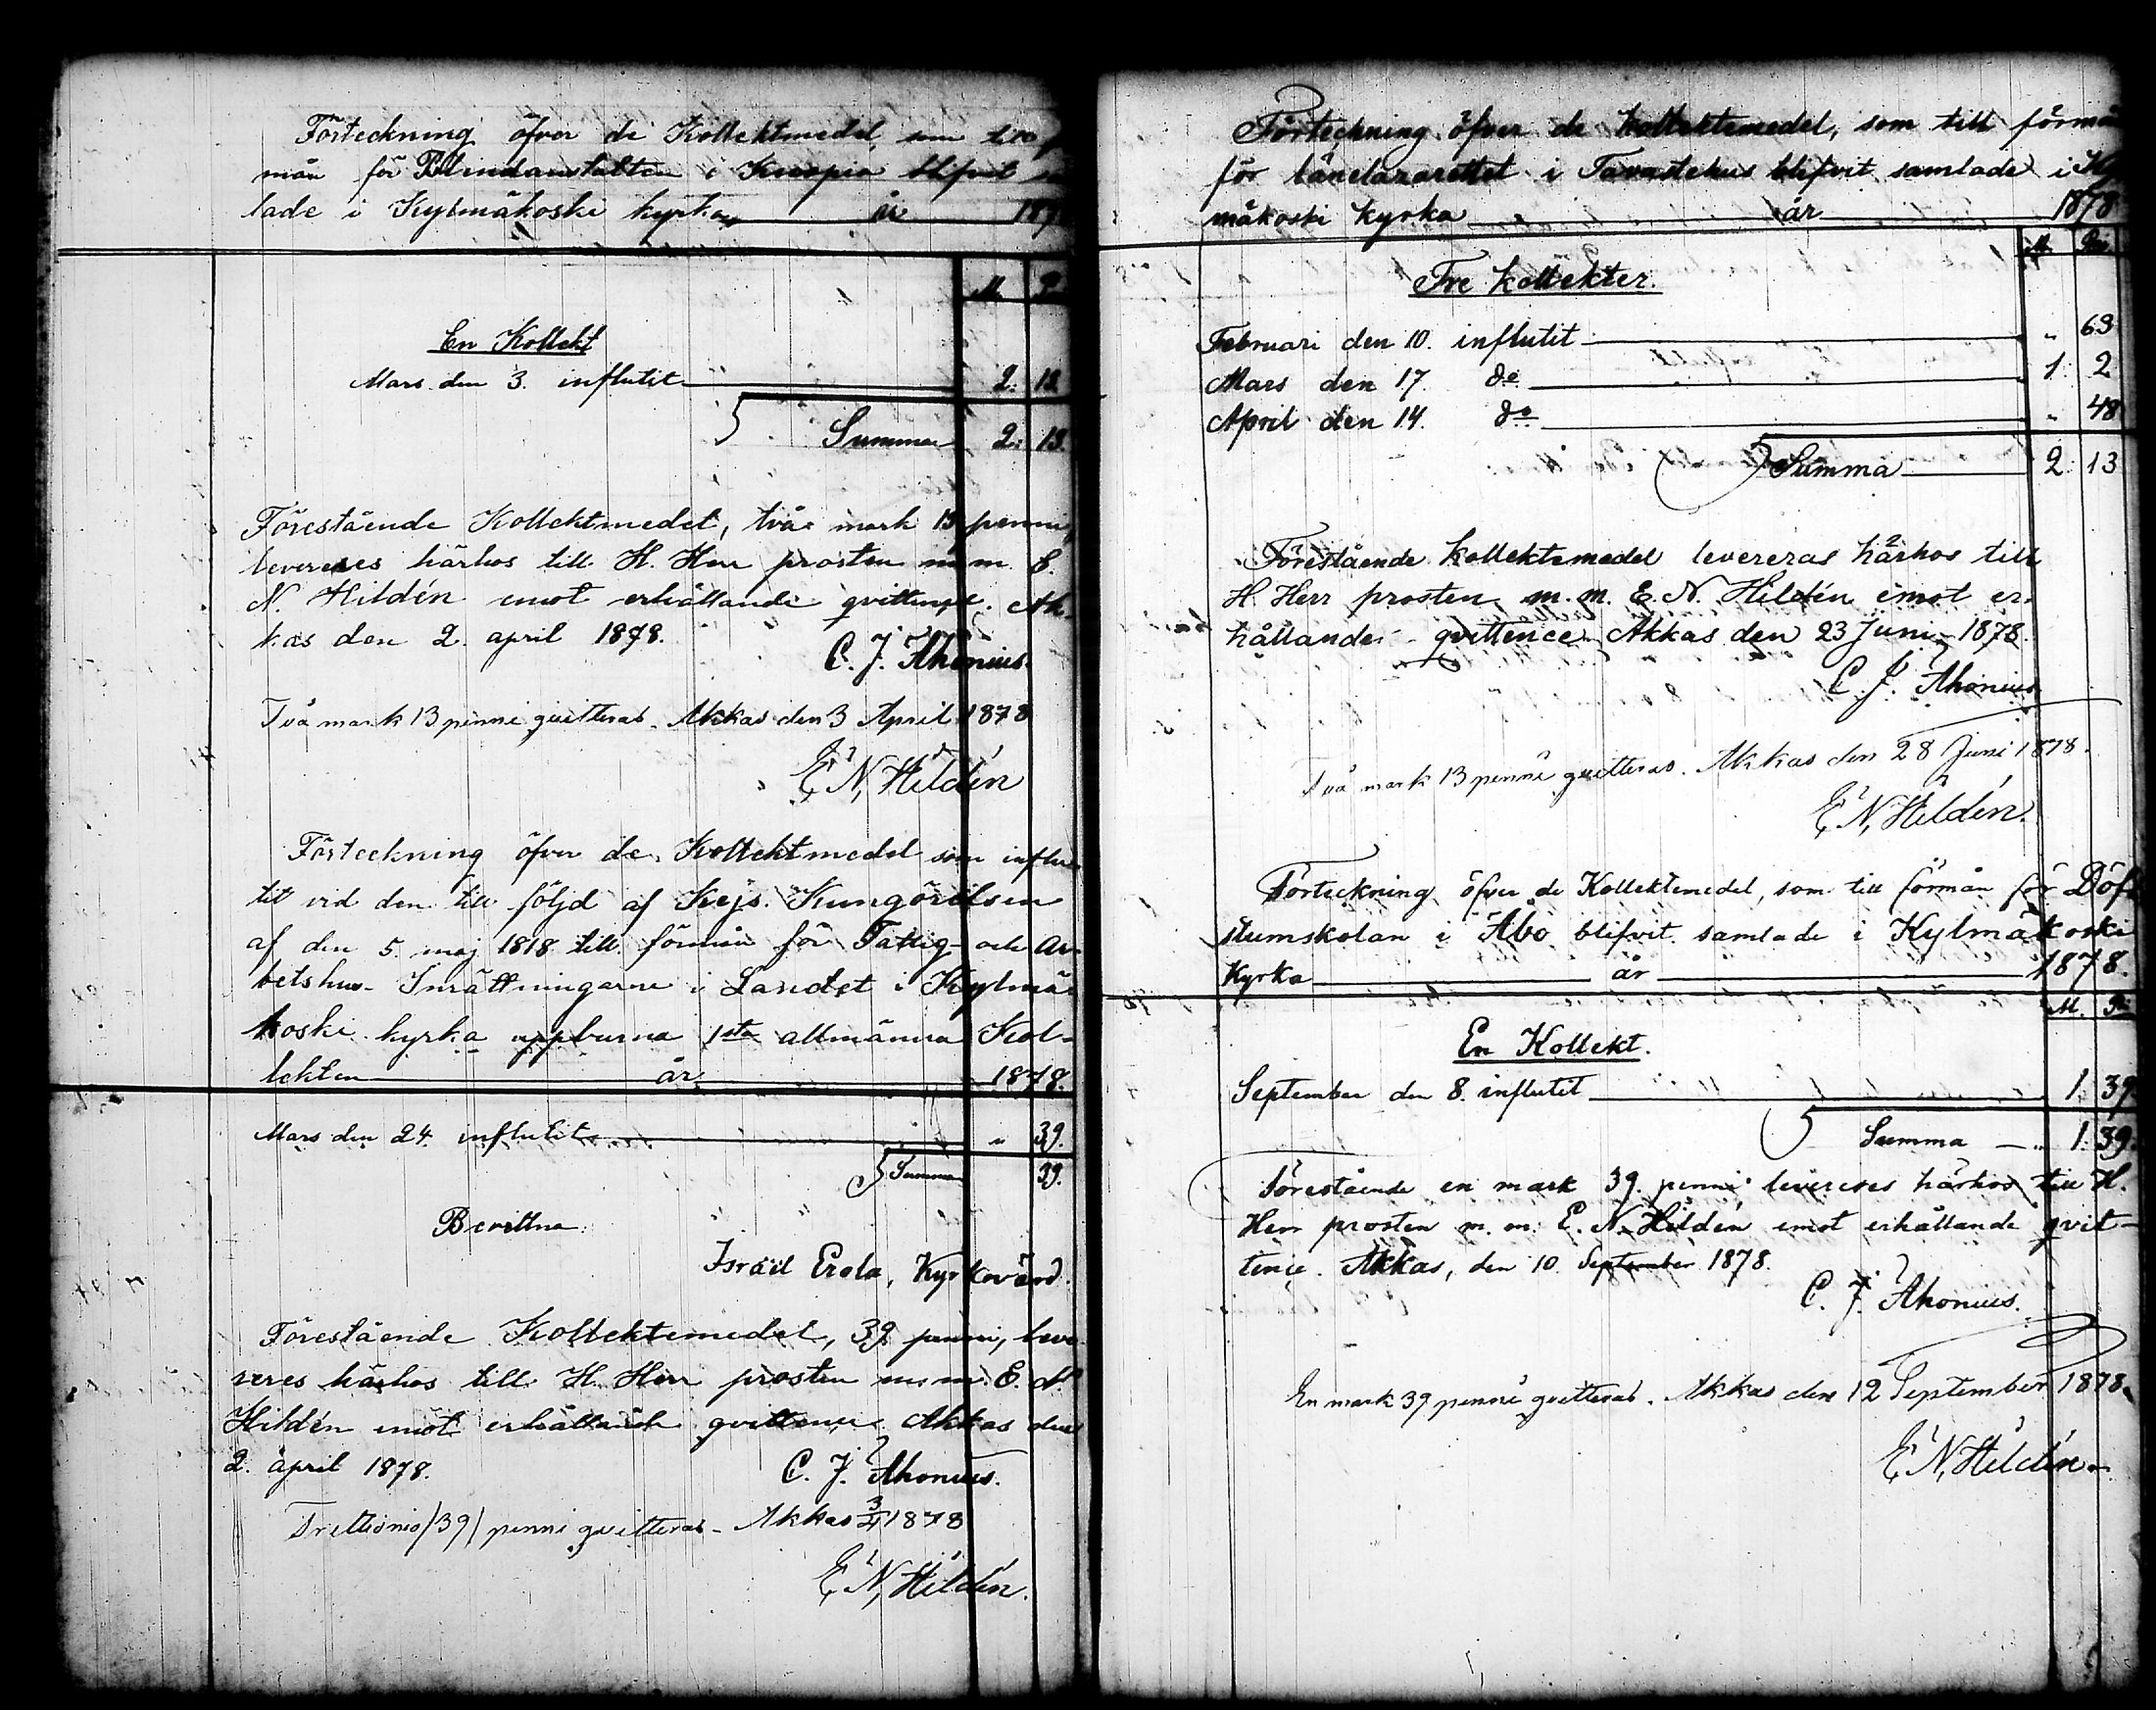 Förteckning öfver de Kollektmedel, som till
mån för Blindanstalten i Kuopio blifvit
lade i Kylmäkoski kyrka år 187
M. P
En Kollekt
Mars den 3. influtit 2. 13.
Summa 2. 13.
Förestående Kollektmedel, två mark 13 penni,
levereres härhos till H. Herr prosten m. m. E.
N. Hildén emot erhållande qvittence. Ak-
kas den 2. april 1878.
C. J. Ahonius.
Två mark 13 penni qvitteras. Akkas den 3 April 1878
E. N. Hildén
Förteckning öfver de Kollektmedel som influ-
tit vid den till följd af Kejs. Kungörelsen
af den 5. maj 1818 till förmån för Fattig- och Ar-
betshus- Inrättningarne i Landet i Kylmä-
koski kyrka uppburna 1sta allmänna Kol-
lekten år 1878.
Mars den 24. influtit " 39.
Summa 39.
Bevittna:
Israël Erola, Kyrkovärd.
Förestående Kollektemedel, 39 penni, leve-
reres härhos till H. Herr prosten m. m. E. N.
Hildén emot erhållande qvittence. Akkas den
2. april 1878.
C. J. Ahonius.
Trettionio /39/ penni qvitteras. Akkas 3/4 1878
E. N. Hildén.
Förteckning öfver de Kollektemedel, som till förmån
för länelazarettet i Tavastehus blifvit samlade i Ky
mäkoski kyrka år 1878
M. Pi.
Tre kollekter.
Februari den 10. influtit " 63
Mars den 17. do 1. 2
April den 14. do " 48
Summa 2. 13
Förestående kollektemedel levereras härhos till
H. Herr prosten m. m. E. N. Hildén emot er-
hållande qvittence. Akkas den 23 Juni 1878.
C. J. Ahonius
Två mark 13 penni qvitteras. Akkas den 28 Juni 1878.
E. N. Hildén.
Förteckning öfver de Kollektemedel, som till förmån för Döf-
stumskolan i Åbo blifvit samlade i Kylmäkoski
Kyrka år 1878.
M. Pi
En Kollekt.
September den 8. influtit 1. 39
Summa 1. 39.
Förestående en mark 39. penni levereres härhos till H.
Herr prosten m. m. E. N. Hildén emot erhållande qvit-
tence. Akkas, den 10. September 1878.
C. J. Ahonius.
En mark 39 penni qvitteras. Akkas den 12 September 1878.
E. N. Hildén.